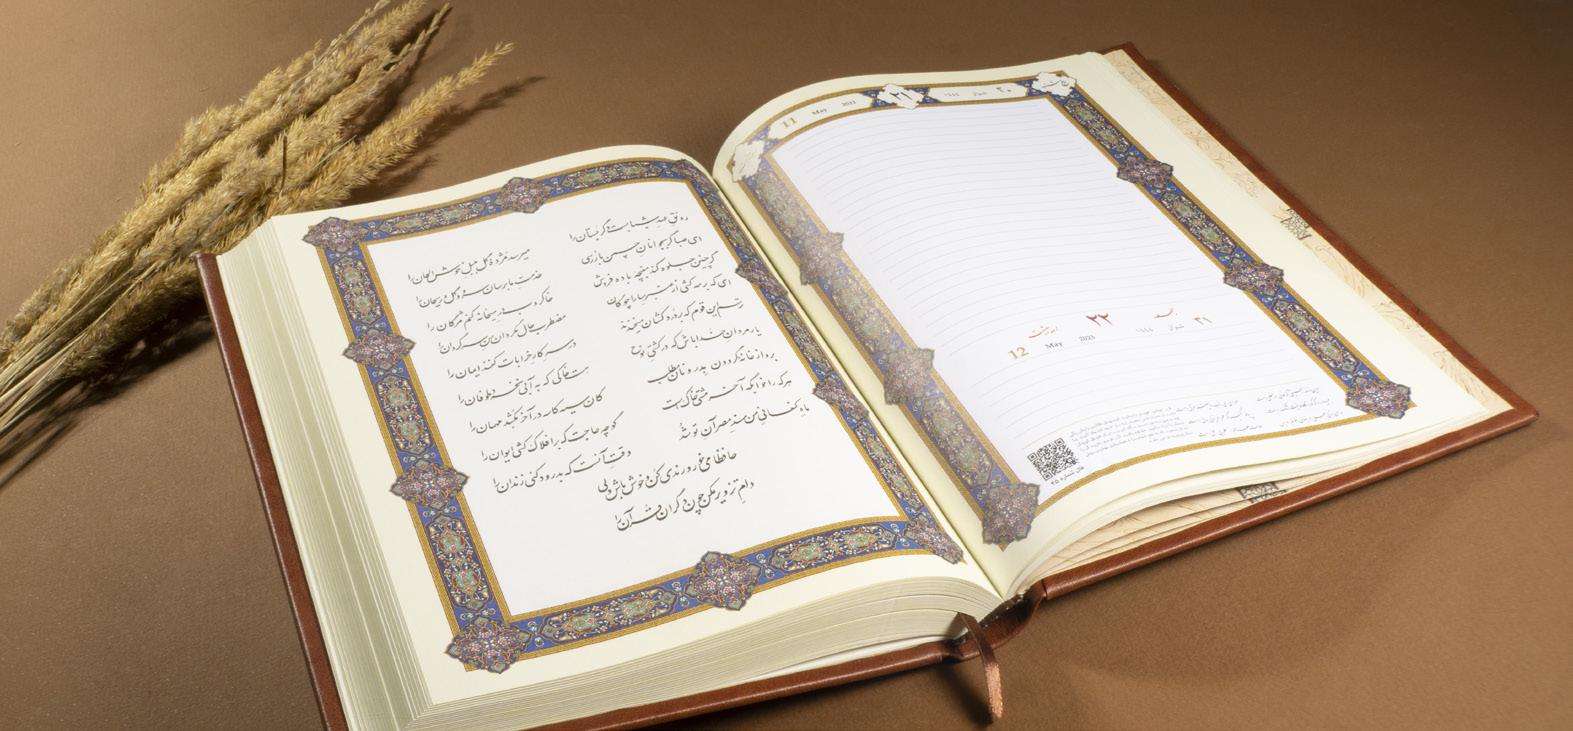 رونق عهد شبابست دگر بستان را
میرسد مژدهٔ گل بلبل خوش الحان را
ای صبا گر بجوانان چمن باز رسی
خدمت ما برسان سرو و گل و ریحان را
گر چنین جلوه کند مغبچهٔ باده فروش
خاکروب در میخانه کنم مژگان را
ای که بر مه کشی از عنبر سارا چوگان
مضطرب حال مگردان من سرگردان را
ترسم این قوم که بر دردکشان میخندند
در سر کار خرابات کنند ایمان را
یار مردان خدا باش که در کشتی نوح
هست خاکی که به آبی نخرد طوفان را
برو از خانهٔ گردون بدر و نان مطلب
کان سیه کاسه در آخر بکشد مهمان را
هر که را خوابگه آخر مشتی خاکست
گو چه حاجت که بر افلاک کشی ایوان را
ماه کنعانی من مسند مصر آن تو شد
وقت آنست که بدرود کنی زندان را
حافظا می خور و رندی کن و خوش باش ولی
دام تزویر مکن چون دگران قرآن را
11 May 2023 ۲۱ ۱۴۴۴ شوال ۲۰
جمعه ۲۲ اردیبهشت
۲۱ شوال ۱۴۴۴
12 May 2023
فال شماره ۴۵